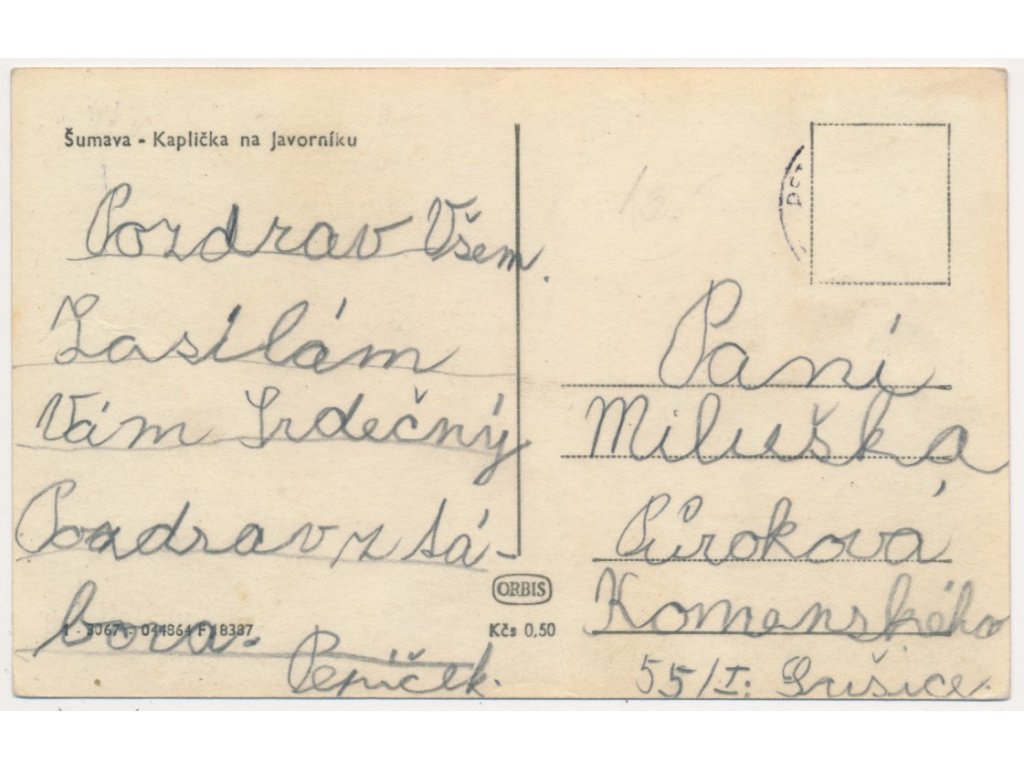 Šumava - Kaplička na Javorníku
Pozdrav Všem.
Zasílám
Vám Srdečný
Pozdrav z tá-
bora.
Pepíček.
1 - 3067 - 044864 F 18387
ORBIS
Kčs 0,50
Paní
Miluška
Půroková
Komenského
55/I. Sušice.